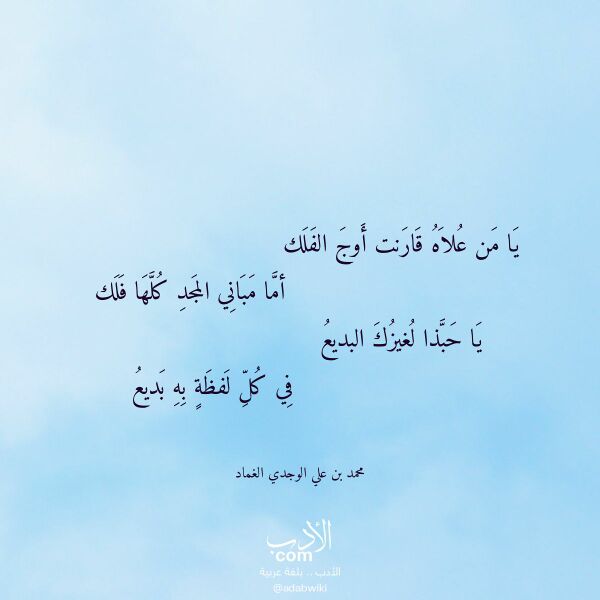 يَا مَن عُلاَهُ قَارَنت أَوجَ الفَلَك
أمَّا مَبَانِي المَجَدِ كُلَّهَا فَلَك
يَا حَبَّذا لُغيزُكَ البديعُ
فِي كُلِّ لَفظَةٍ بِهِ بَديعُ
محمد بن علي الوجدي الغماد
الأدب
com
الأدب .. بلغة عربية
@adabwiki